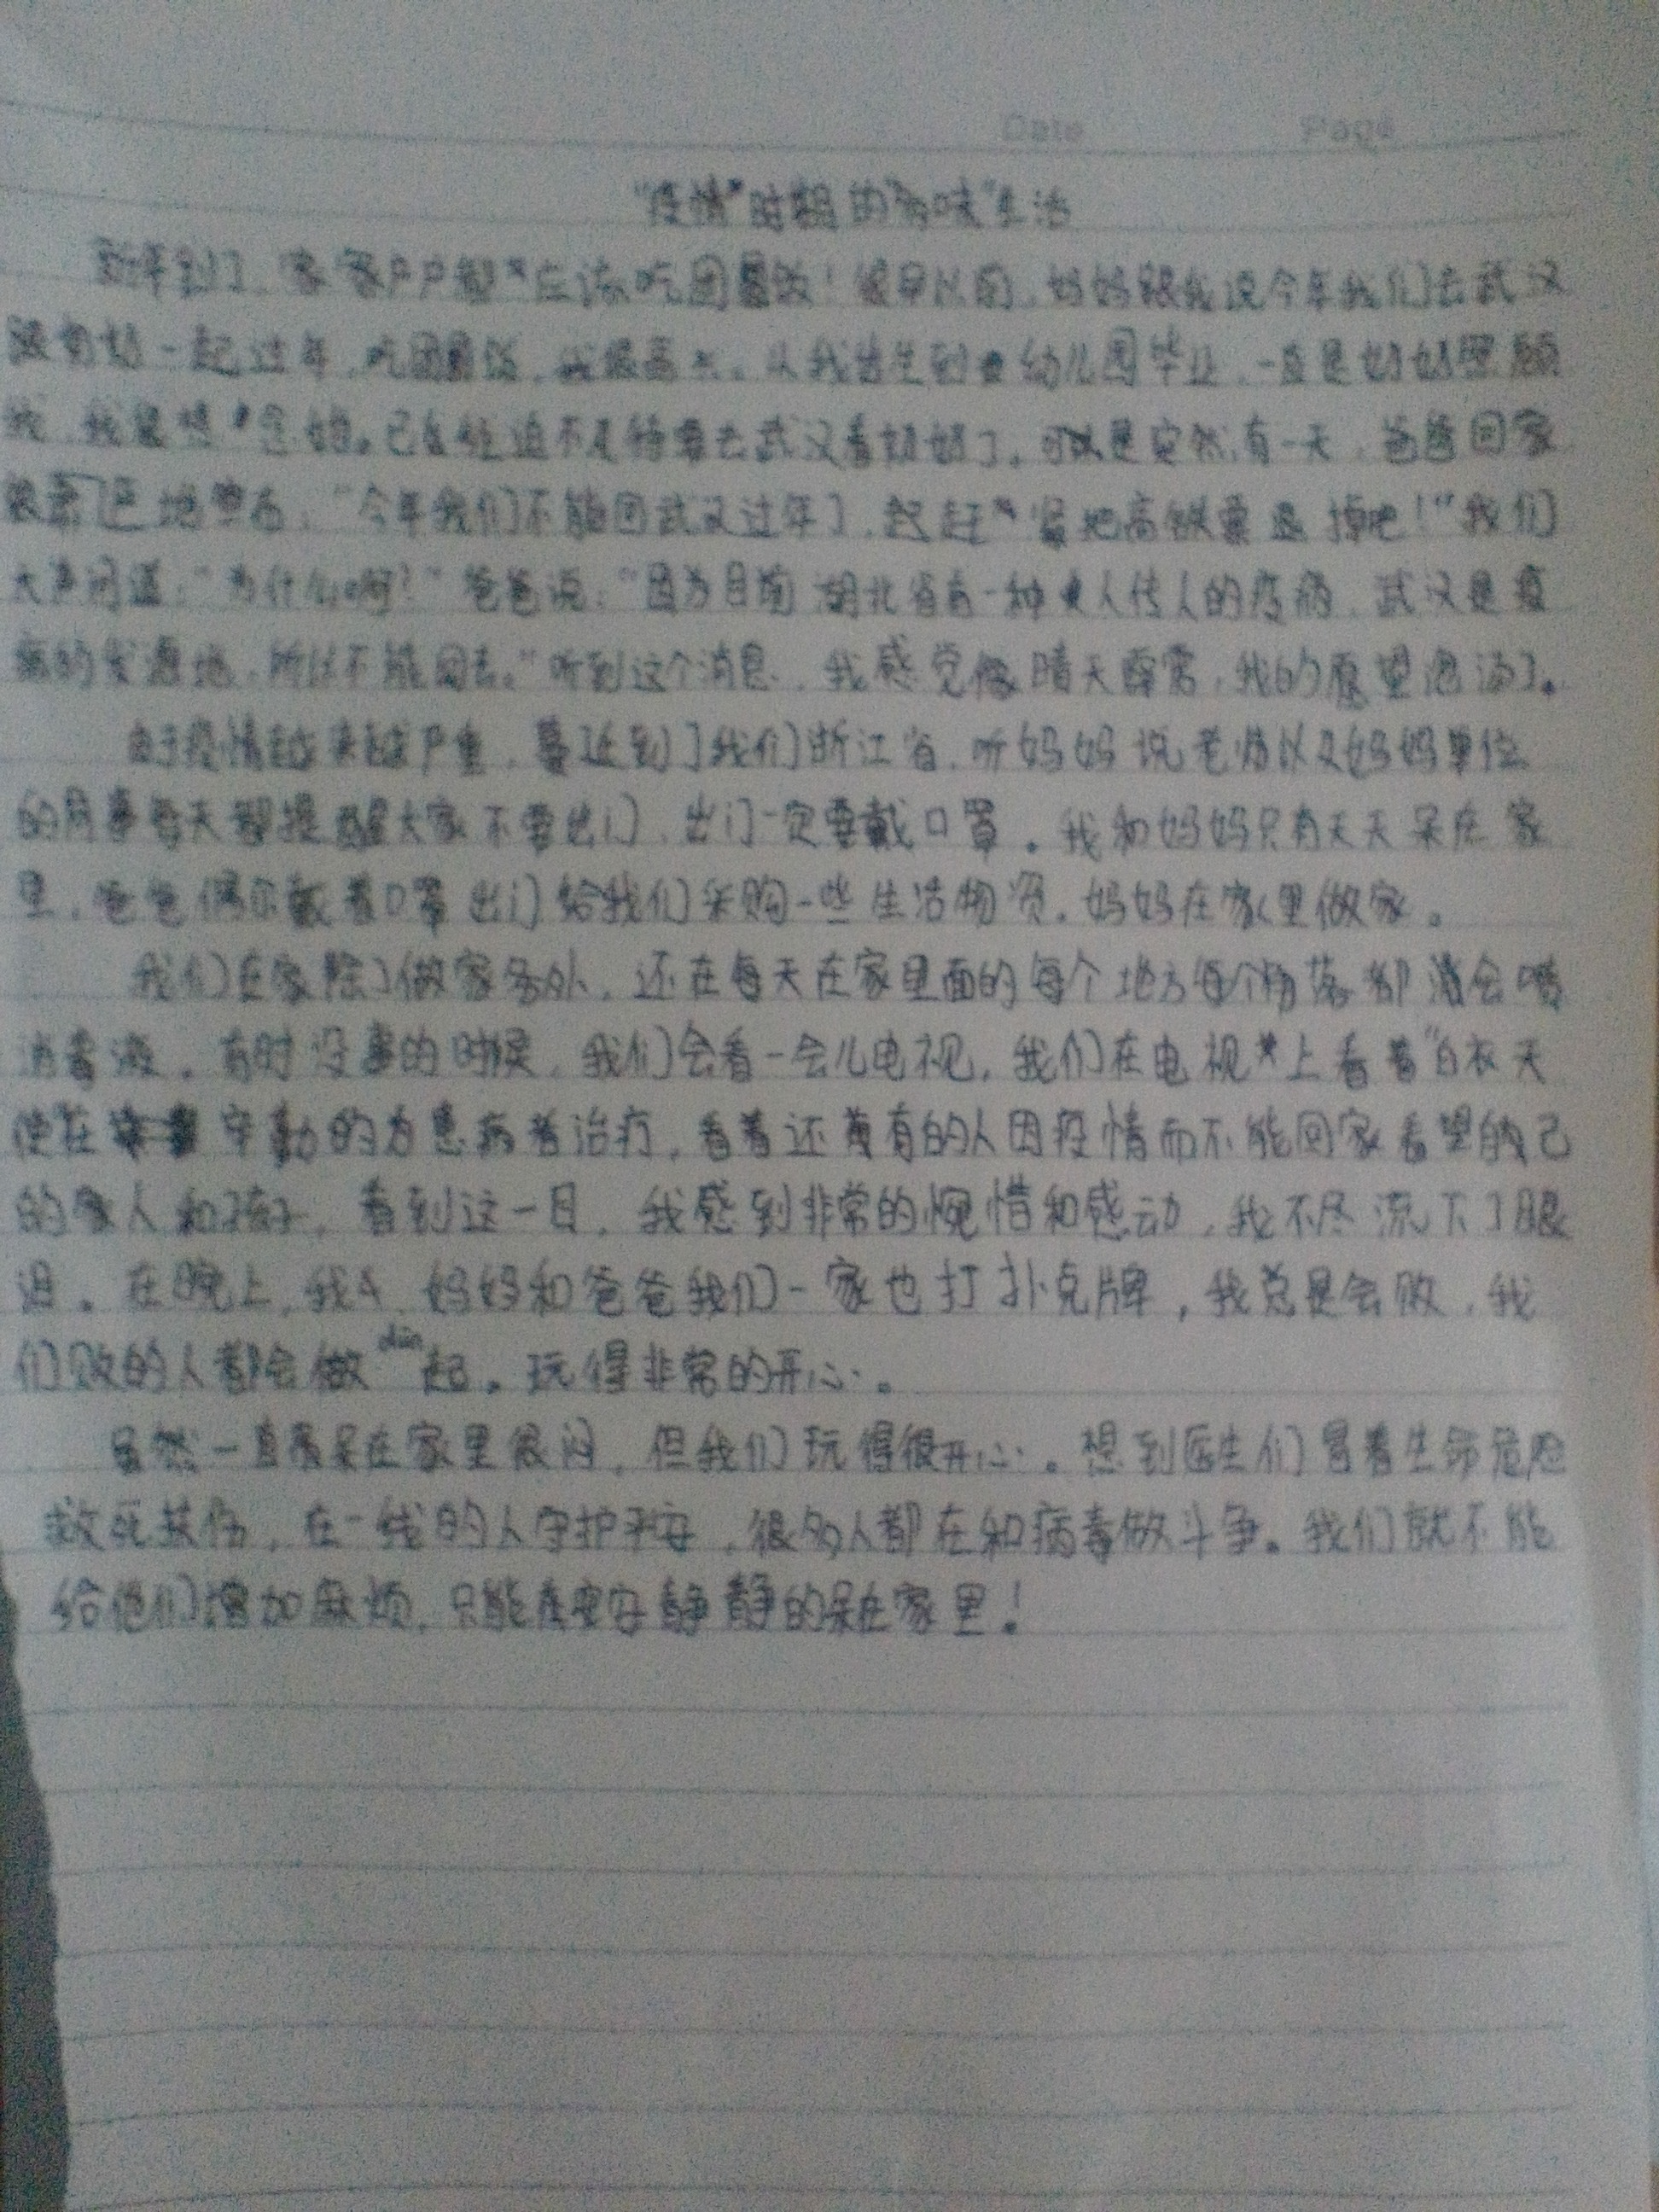 Date Page
"疫情"时期的"多味"生活
新年到了,家家户户都应该吃团圆饭!很早以前,妈妈跟我说今年我们去武汉
跟奶奶一起过年,吃团圆饭,我很高兴。从我出生到幼儿园毕业,一直是奶奶照顾
我,我很想念她。已经迫不及待要去武汉看奶奶了。可是突然有一天,爸爸回家
地宣布:"今年我们不能回武汉过年了,赶紧地高铁票退掉吧!"我们
大声问道:"为什么啊?"爸爸说:"因为目前湖北省有一种人传人的疫病,武汉是疫
病的发源地,所以不能回去。"听到这个消息,我感觉像晴天霹雳,我的愿望泡汤了。
由于疫情越来越严重,蔓延到了我们浙江省,听妈妈说老师以及妈妈单位
的同事每天都提醒大家不要出门,出门一定要戴口罩。我和妈妈只有天天呆在家
里,爸爸偶尔戴着口罩出门给我们采购一些生活物资。妈妈在家里做家。
我们在家除了做家务外,还在每天在家里面的每个地方每个角落都会喷
消毒液。有时没事的时候,我们会看一会儿电视,我们在电视上看着"白衣天
使在辛勤的为患病者治疗,看着还有的人因疫情而不能回家看望自己
的家人和孩子,看到这一目,我感到非常的惋惜和感动,我不尽流下了眼
泪。在晚上,我、妈妈和爸爸我们一家也打扑克牌,我总是会败,我
们败的人都会做dūn起。玩得非常的开心。
虽然一直呆在家里很闷,但我们玩得很开心。想到医生们冒着生命危险
救死扶伤,在一线的人守护平安,很多人都在和病毒做斗争。我们就不能
给他们增加麻烦,只能安安静静的呆在家里!